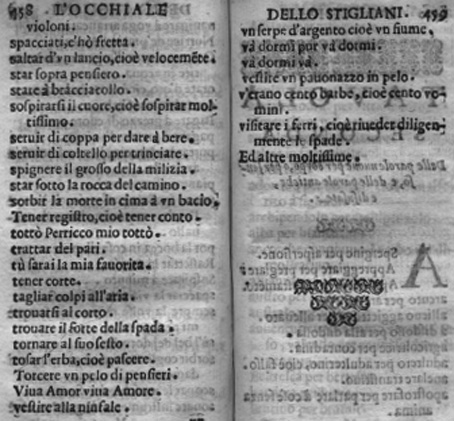 458 L'OCCHIALE
violoni.
spacciati, c'hò fretta.
saltar d'vn lancio, cioè velocemēte.
star sopra pensiero.
stare à bracciacollo.
sospirarsi il cuore, cioè sospirar mol-
tissimo.
seruir di coppa per dare à bere.
seruir di coltello per trinciare.
spignere il grosso della milizia.
star sotto la rocca del camino.
sorbir la morte in cima à vn bacio.
Tener registro, cioè tener conto.
tottò Perricco mio tottò.
trattar del pari.
tù sarai la mia fauorita.
tener corte.
tagliar colpi all'aria.
trouarsi al corto.
trouare il forte della spada.
tornare al suo sesto.
tosar l'erba, cioè pascere.
Torcere vn pelo di pensieri.
Viua Amor viua Amore.
vestire alla ninfale.
DELLO STIGLIANI. 459
vn serpe d'argento cioè vn fiume.
và dormi pur và dormi.
và dormi và.
vestire vn pauonazzo in pelo.
v'erano cento barbe, cioè cento vo-
mini.
visitare i ferri, cioè riueder diligen-
mente le spade.
Ed altre moltissime.